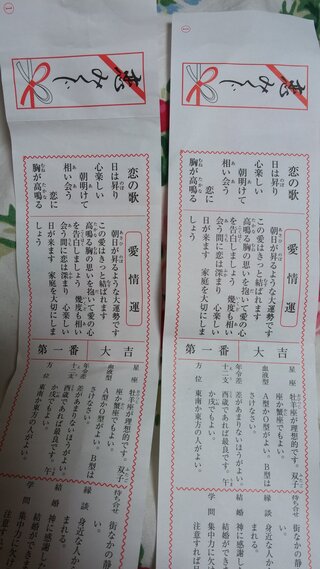 ①
恋みくじ
恋の歌
日は昇り
心楽しい
朝明けて
相い会う
恋に
胸が高鳴る
愛情運
朝日が昇るような大運勢です
この愛はきっと結ばれます
高鳴る胸の思いを抱いて愛の心
を告白しましょう 幾度も相い
会う間に恋は深まり 心楽しい
日が来ます 家庭を大切にしま
しょう
第一番 大吉
星座 牡羊座が理想的です。双子
座か蟹座でもよい。
血液型 A型かO型がよい。B型は
さけなさい。
年令差 差があまりないほうがよい。
十二支 酉歳であれば最良です。午
か戌でもよい。
方位 東南か東方の人がよい。
待ち合せ 街なかの静
い。
縁談 身近な人か
まれる。
結婚 神に感謝し
結婚ができ
学問 集中力に欠け
①
恋みくじ
恋の歌
日は昇り
心楽しい
朝明けて
相い会う
恋に
胸が高鳴る
愛情運
朝日が昇るような大運勢です
この愛はきっと結ばれます
高鳴る胸の思いを抱いて愛の心
を告白しましょう 幾度も相い
会う間に恋は深まり 心楽しい
日が来ます 家庭を大切にしま
しょう
第一番 大吉
星座 牡羊座が理想的です。双子
座か蟹座でもよい。
血液型 A型かO型がよい。B型は
さけなさい。
年令差 差があまりないほうがよい。
十二支 酉歳であれば最良です。午
か戌でもよい。
方位 東南か東方の人がよい。
待ち合せ 街なかの静
い。
縁談 身近な人か
まれる。
結婚 神に感謝し
結婚ができ
学問 集中力に欠け
注意すれば